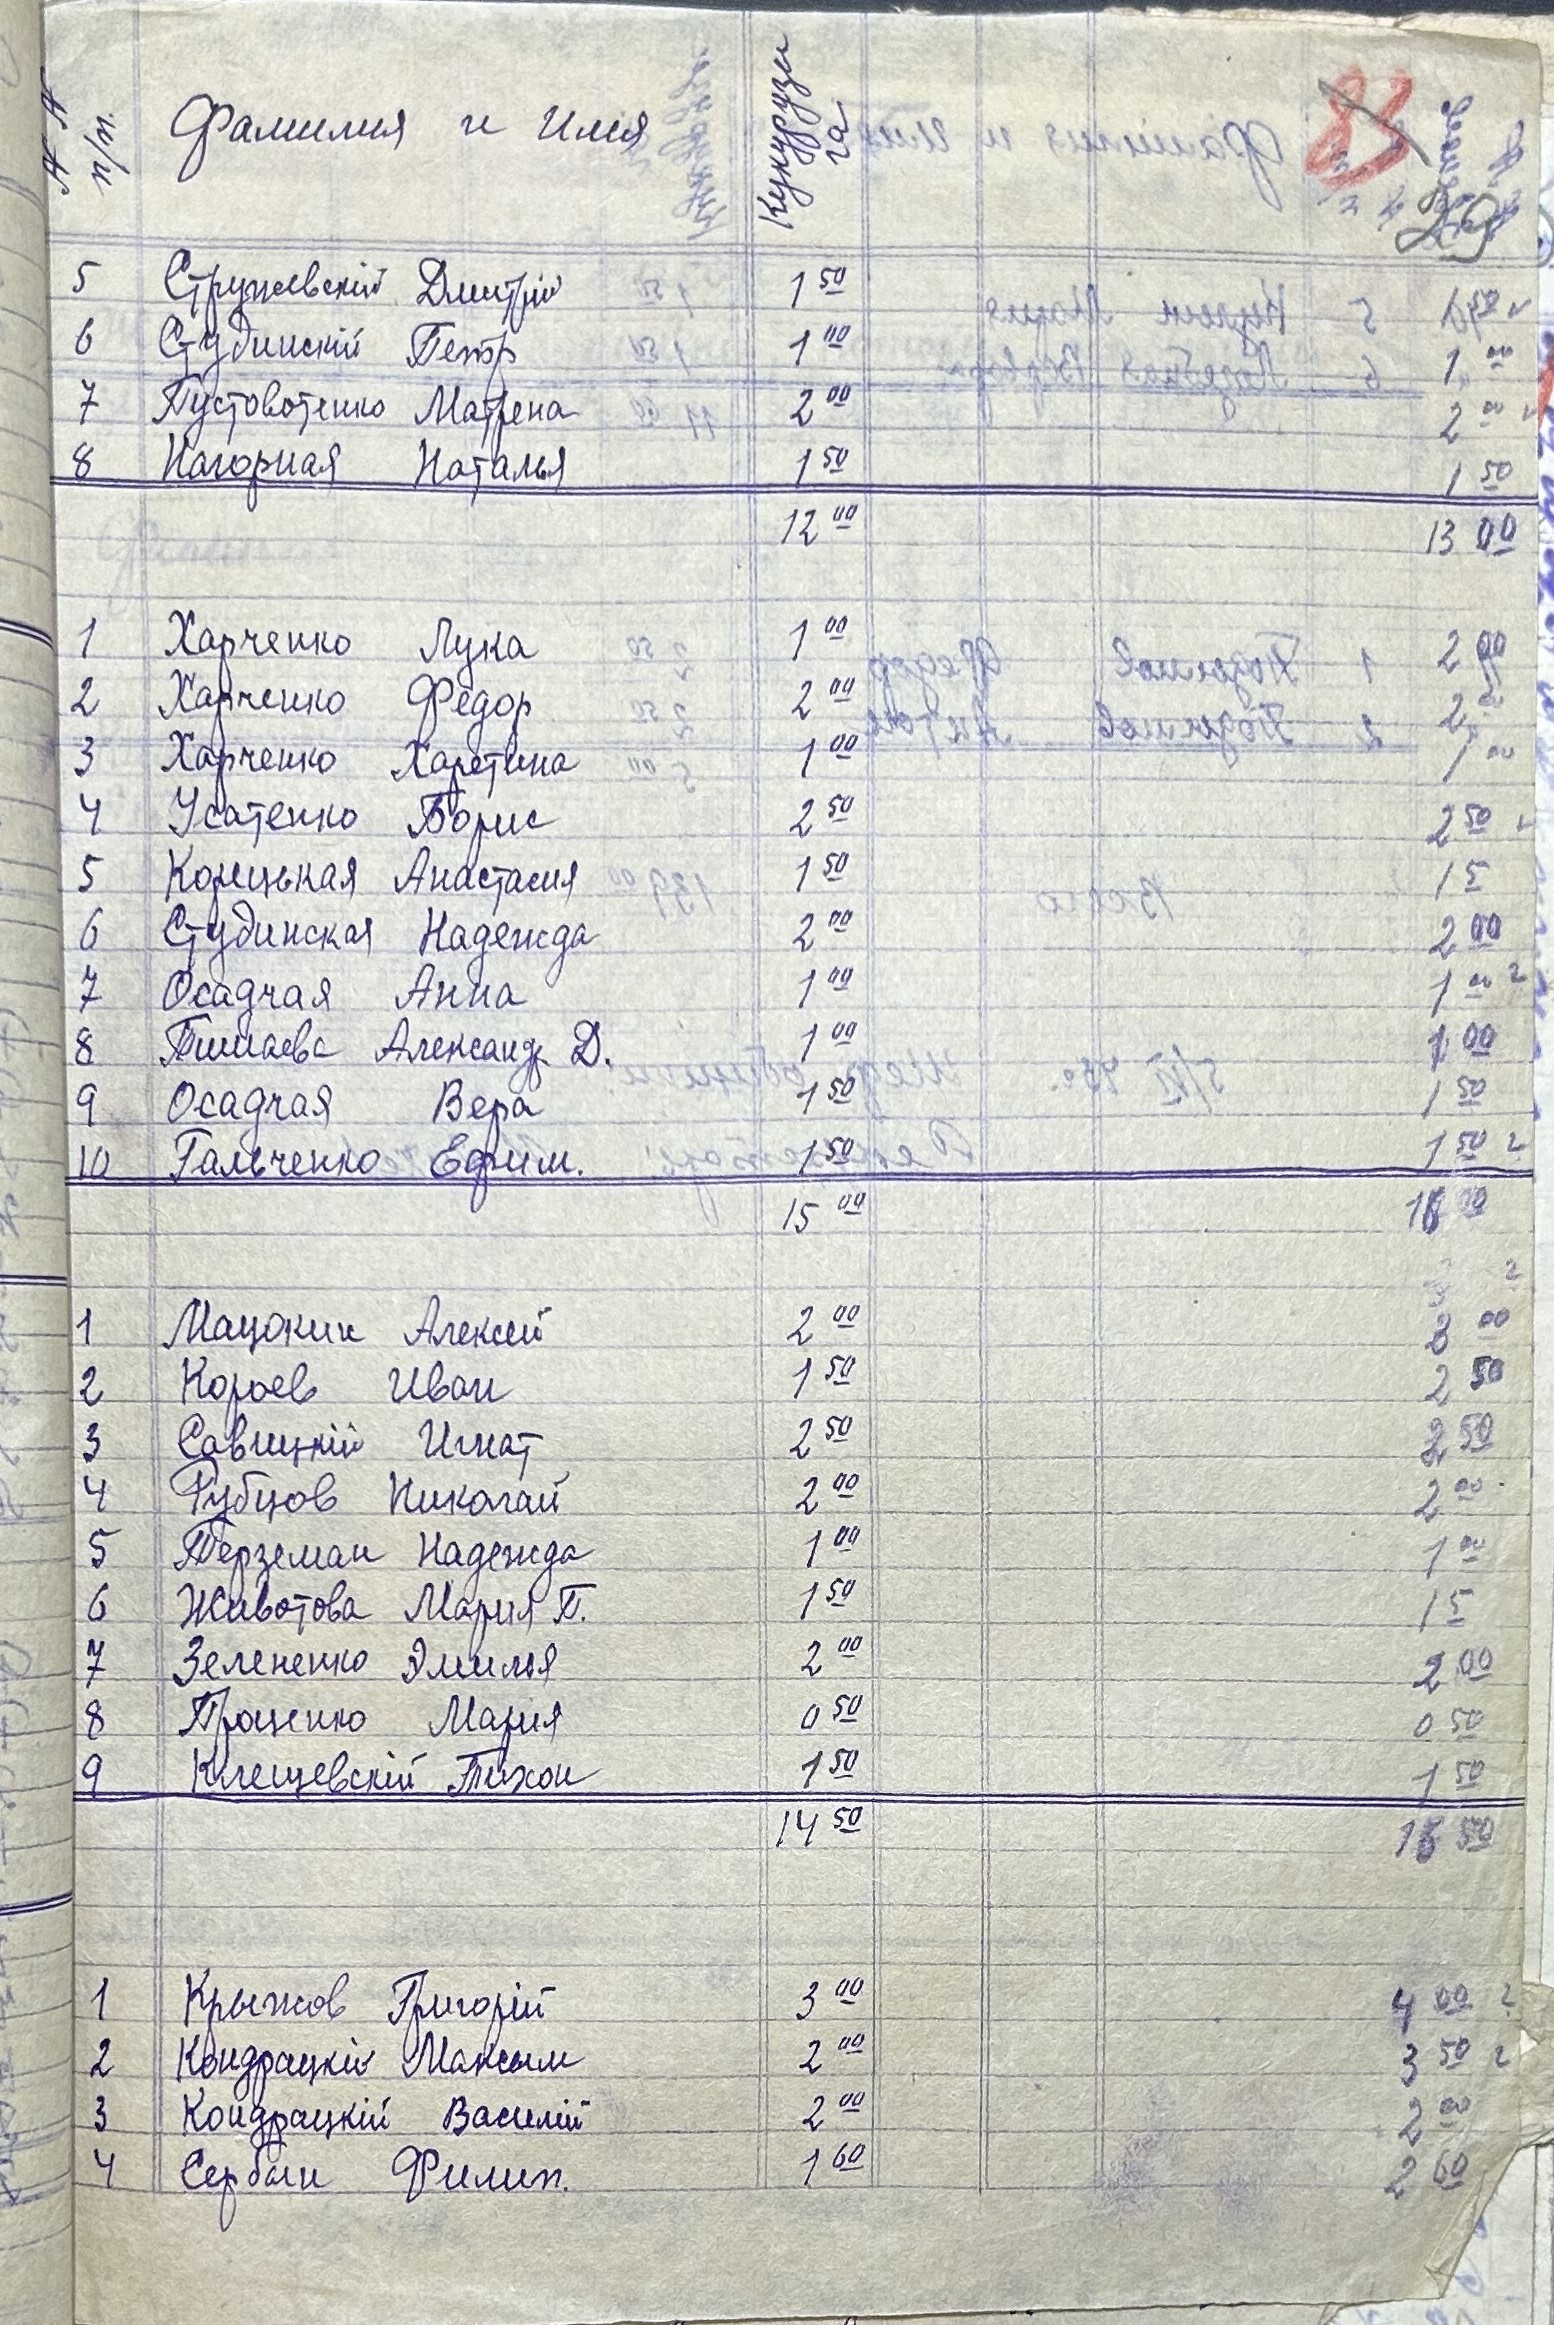 №№ п/п. Фамилия и Имя Кукурузы га 83
49
5 Стружевскій Дмитрій 1 50
6 Студинскій Петор 1 00 1 00
7 Пустовотенко Матрена 2 00 2 00
8 Нагорная Наталья 1 50 1 50
12 00 13 00
1 Харченко Лука 1 00 2 00
2 Харченко Федор 2 00 2
3 Харченко Харетина 1 00 1 00
4 Усатенко Борис 2 50 2 50
5 Корецькая Анастасия 1 50 1 5
6 Студинская Надежда 2 00 2 00
7 Осадчая Анна 1 00 1 00
8 Александр Д. 1 00 1 00
9 Осадчая Вера 1 50 1 50
10 Гальченко Ефим. 1 50 1 50
15 00
1 Мацокин Алексей 2 00
2 Короев Иван 1 50 2 50
3 Савицкій Игнат 2 50 2 50
4 Рубцов Николай 2 00 2 00
5 Терземан Надежда 1 00 1 00
6 Животова Мария П. 1 50 1 5
7 Зелененко Эмилья 2 00 2 00
8 Проценко Мария 0 50 0 50
9 Клещевскій Тихон 1 50 1 50
14 50
1 Крыжов Григорій 3 00 4 00
2 Кондрацкій Максым 2 00 3 50
3 Кондрацкій Василій 2 00 2 00
4 Сербин Филип. 1 60 2 60